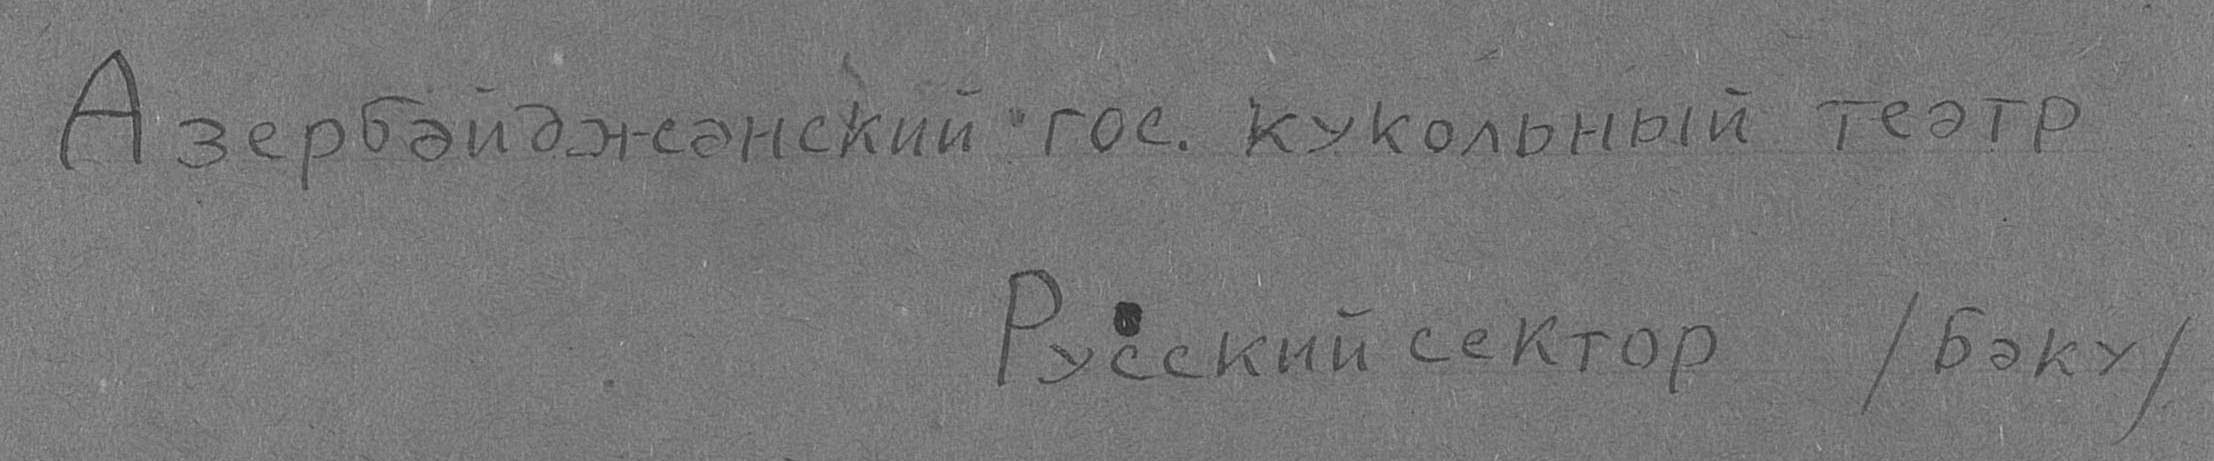 Азербайджанский гос. кукольный театр
Русский сектор /Баку/